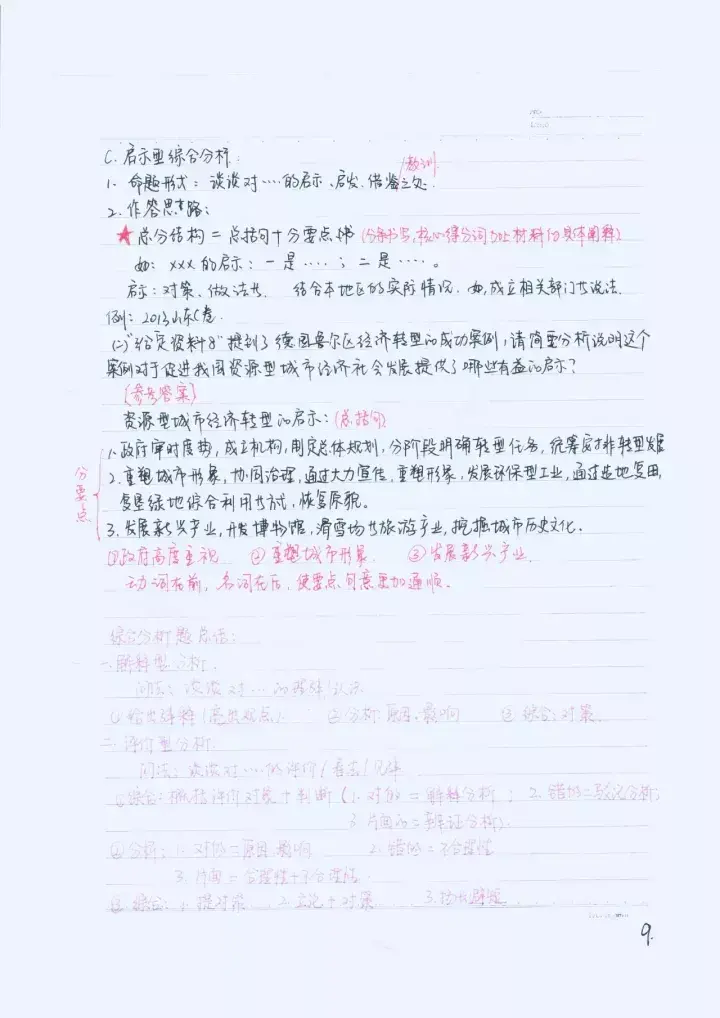 C. 启示型综合分析:
1. 命题形式: 谈谈对....的启示、启发、借鉴之处. /教训
2. 作答思路:
★ 总分结构 = 总括句+分要点梯 (分条书写,核心得分词+材料的具体阐释)
如: xxx的启示: 一是....; 二是....。
启示: 对策、做法书. 结合本地区的实际情况. 如,成立相关部门书说法.
例: 2013山东C卷.
(二)"给定资料8"提到了德国鲁尔区经济转型的成功案例, 请简要分析说明这个
案例对于促进我国资源型城市经济社会发展提供了哪些有益的启示?
[参考答案]
资源型城市经济转型的启示: (总括句)
分要点
1. 政府审时度势, 成立机构, 制定总体规划, 分阶段明确转型任务, 统筹安排非转型发展
2. 重塑城市形象, 协同治理, 通过大力宣传, 重塑形象, 发展环保型工业, 通过造地复田,
复垦绿地综合利用书方式, 恢复原貌。
3. 发展新兴产业, 开发博物馆, 滑雪场书旅游产业, 挖掘城市历史文化.
①政府高度重视 ②重塑城市形象 ③发展新兴产业.
动词在前, 名词在后, 使要点句意更加通顺。
综合分析题总结:
一. 解释型分析.
问法: 谈谈对....的理解/认识
①给出解释(亮出观点). ②分析:原因、影响 ③综合: 对策.
二. 评价型分析.
问法: 谈谈对....的评价/看法/见解
①综合: 概括评价对象+判断 (1. 对的=解释分析; 2. 错的=驳论分析;
3. 片面的=辩证分析).
②分析: 1. 对的=原因 影响 2. 错的=不合理性
3. 片面=合理性+不合理性.
③综合: 1. 提对策 2. 立论+对策 3.
9.